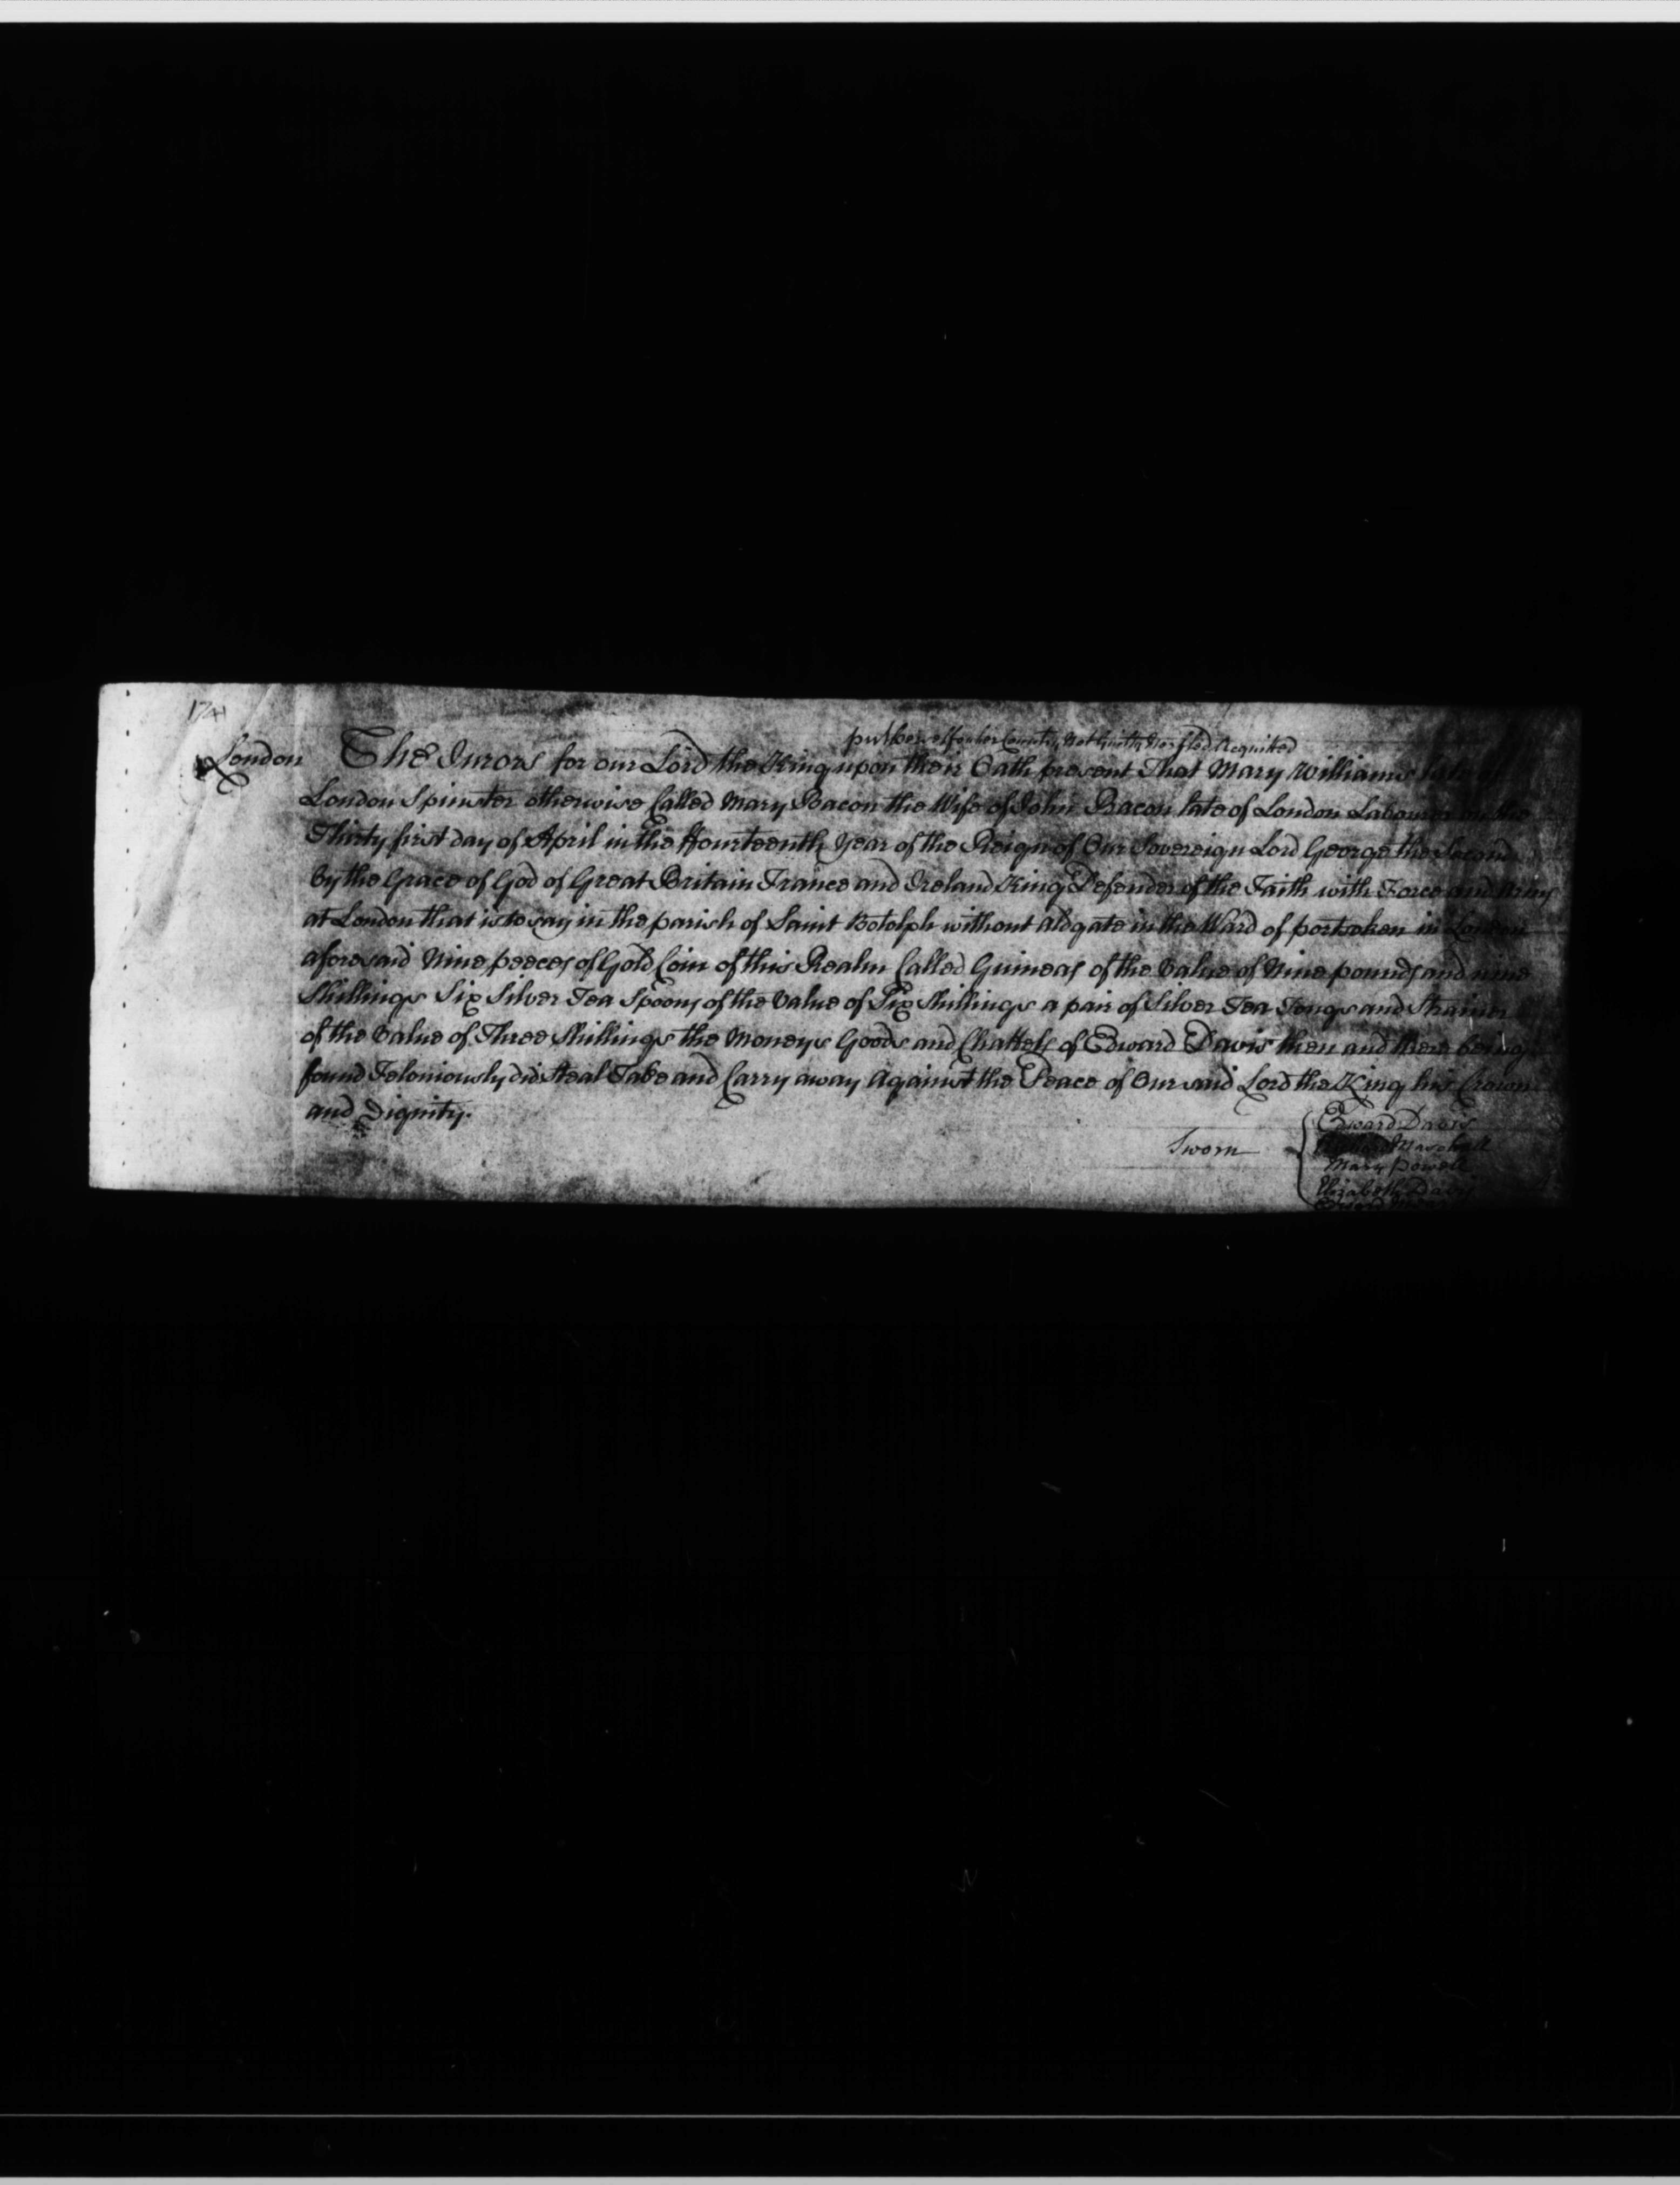 1741
put herself on her Country Not guilty Nor fled Acquitted
London The Jurors for our Lord the King upon their Oath present That Mary Williams late of
London Spinster otherwise Called Mary Bacon the Wife of John Bacon late of London Labourer on the
Thirty first day of April in the ffourteenth Year of the Reign of Our Sovereign Lord George the Second
By the Grace of God of Great Britain France and Ireland King Defender of the Faith with Force and Arms
at London that is to say in the parish of Saint Botolph without Aldgate in the Ward of portsoken in London
aforesaid Nine peeces of Gold Coin of this Realm Called Guineas of the Value of Nine pounds and nine
Shillings Six Silver Tea Spoons of the Value of Six Shillings a pair of Silver Tea Tongs and Strainer
of the Value of Three Shillings the Moneys Goods and Chattels of Edward Davis then and there being
found Feloniously did Steal Take and Carry away Against the Peace of Our said Lord the King his Crown
and Dignity.
Sworn
Edward Davis
Marshall
Mary Powell
Elizabeth Davis